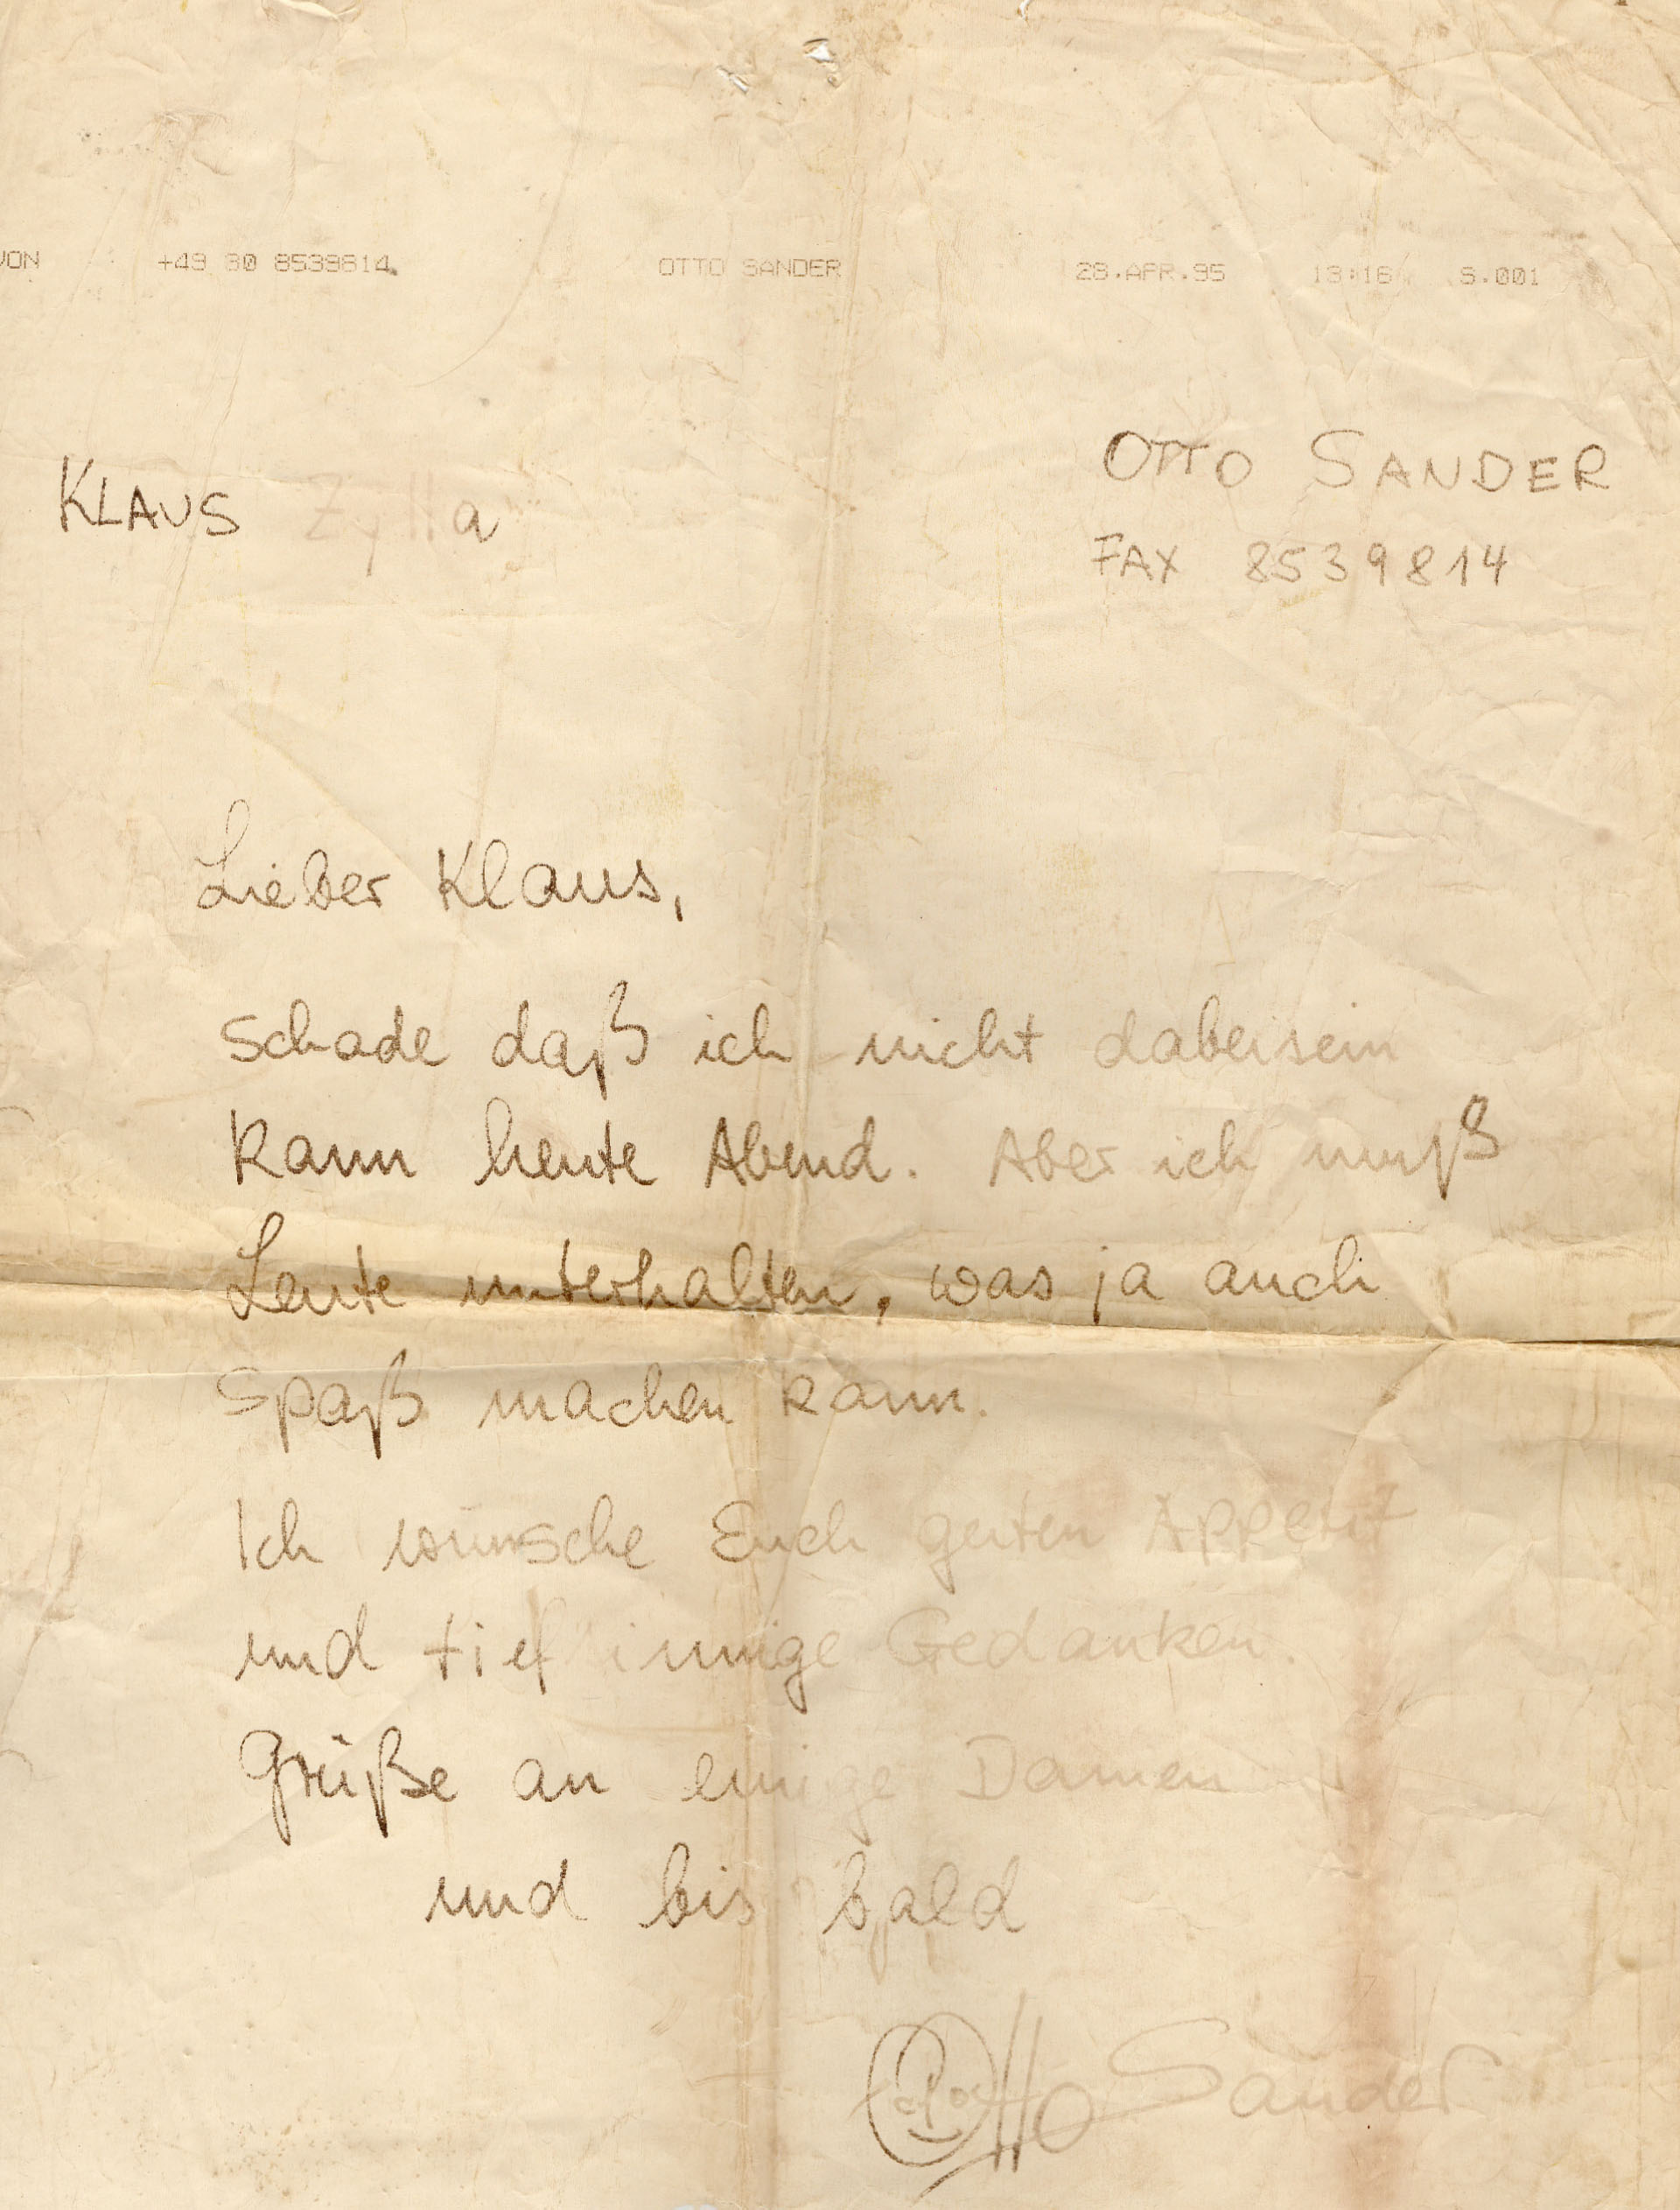 VON +49 30 8539814 OTTO SANDER 28.APR.95 13:16 S.001
OTTO SANDER
KLAUS Zylla
FAX 8539814
Lieber Klaus,
schade daß ich nicht dabeisein
kann heute Abend. Aber ich muß
Leute unterhalten, was ja auch
Spaß machen kann.
Ich wünsche Euch guten Appetit
und tiefinnige Gedanken.
Grüße an einige Damen
und bis bald
Otto Sander